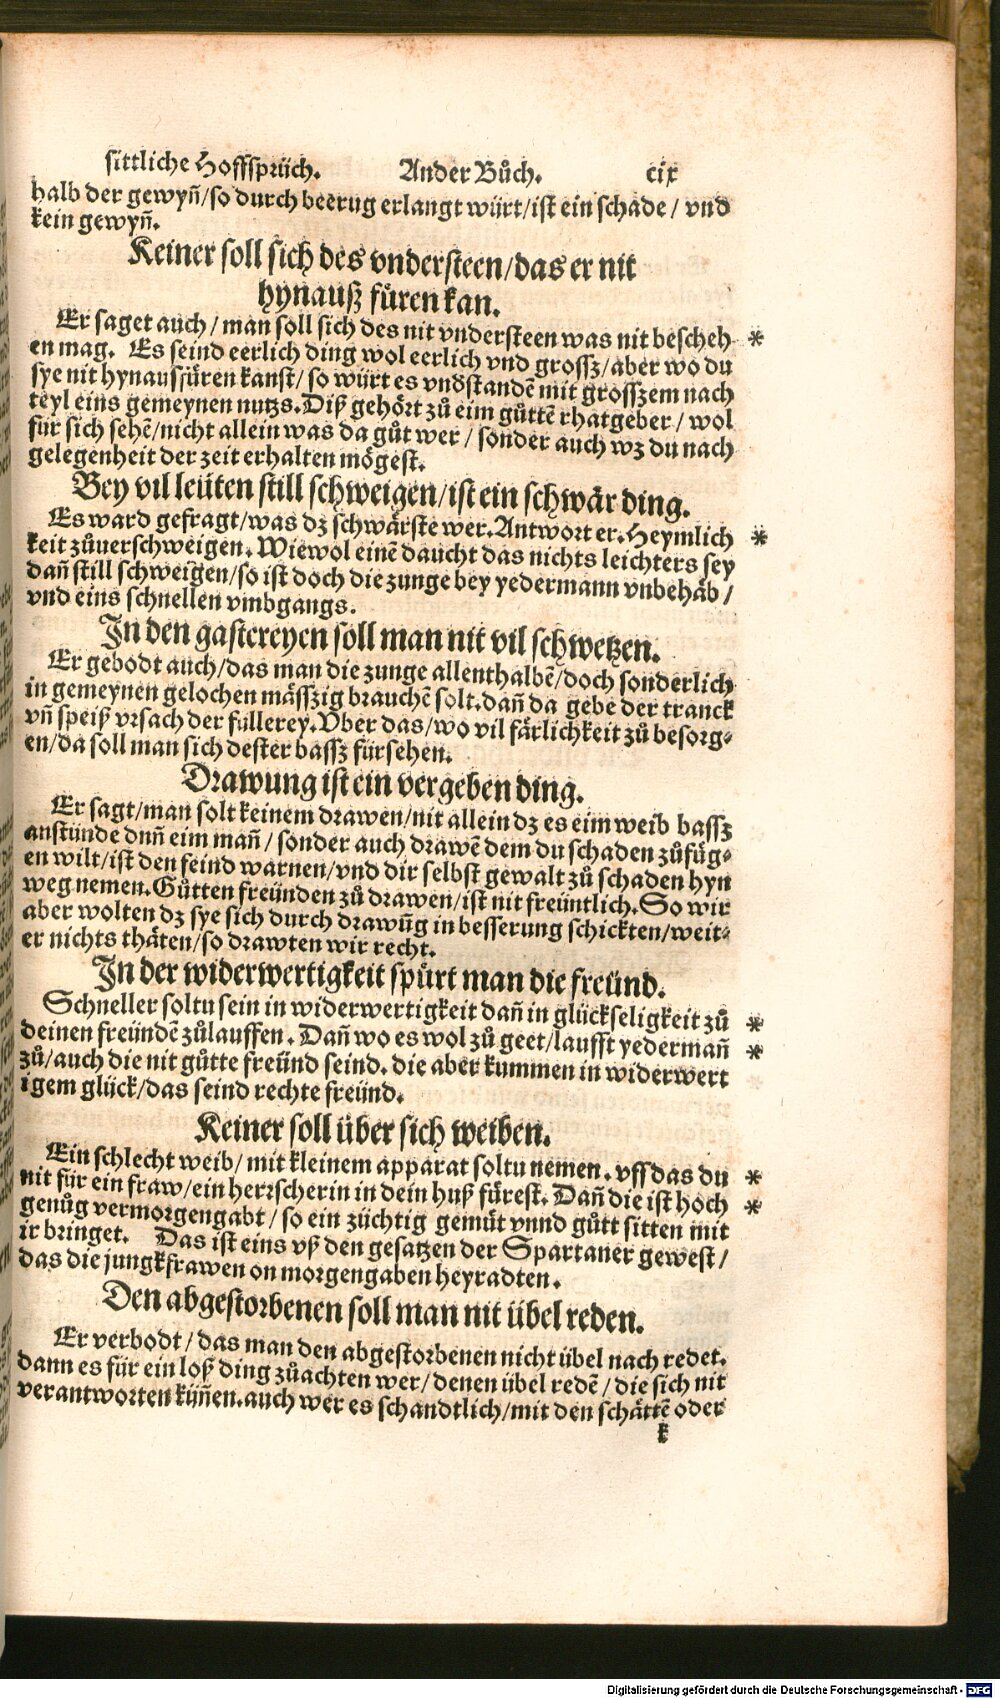 sittliche Hoffsprüch. Ander Bůch. cix
halb der gewyñ/so durch beerug erlangt würt/ist ein schade/ vnd
kein gewyñ.
Keiner soll sich des vndersteen/das er nit
hynauß füren kan.
Er saget auch/ man soll sich des nit vndersteen was nit bescheh *
en mag. Es seind eerlich ding wol eerlich vnd grossz/aber wo du
sye nit hynausfüren kanst/ so würt es vndstandē mit grosszem nach
teyl eins gemeynen nutzs. Diß gehört zů eim gůttē rhatgeber/ wol
für sich sehē/nicht allein was da gůt wer/ sonder auch wz du nach
gelegenheit der zeit erhalten mögest.
Bey vil leüten still schweigen/ist ein schwär ding.
Es ward gefragt/was dz schwärste wer. Antwort er. Heymlich *
keit zůuerschweigen. Wiewol einē daucht das nichts leichters sey
dañ still schweigen/so ist doch die zunge bey yedermann vnbehäb/
vnd eins schnellen vmbgangs.
In den gastereyen soll man nit vil schwetzen.
Er gebodt auch/das man die zunge allenthalbē/doch sonderlich
in gemeynen gelochen mässzig brauchē solt. dañ da gebe der tranck
vñ speiß vrsach der füllerey. Vber das/wo vil färlichkeit zů besorg-
en/da soll man sich dester bassz fürsehen.
Drawung ist ein vergeben ding.
Er sagt/man solt keinem drawen/nit allein dz es eim weib bassz
anstünde dnñ eim mañ/ sonder auch drawē dem du schaden zůfüg-
en wilt/ist den feind warnen/vnd dir selbst gewalt zů schaden hyn
weg nemen. Gůtten freünden zů drawen/ist nit freüntlich. So wir
aber wolten dz sye sich durch drawūg in besserung schickten/weit-
er nichts thäten/so drawten wir recht.
In der widerwertigkeit spürt man die freünd.
Schneller soltu sein in widerwertigkeit dañ in glückseligkeit zů *
deinen freündē zůlauffen. Dañ wo es wol zů geet/laufft yedermañ *
zů/auch die nit gůtte freünd seind. die aber kummen in widerwert
igem glück/das seind rechte freünd.
Keiner soll über sich weiben.
Ein schlecht weib/ mit kleinem apparat soltu nemen. vff das du *
nit für ein fraw/ein herrscherin in dein huß fürest. Dañ die ist hoch *
genůg vermorgengabt/ so ein züchtig gemüt vnnd gůtt sitten mit
ir bringet. Das ist eins vß den gesatzen der Spartaner gewest/
das die jungkfrawen on morgengaben heyradten.
Den abgestorbenen soll man nit übel reden.
Er verbodt/ das man den abgestorbenen nicht übel nach redet.
dann es für ein loß ding zůachten wer/ denen übel redē/ die sich nit
verantworten kijñen. auch wer es schandtlich/mit den schättē oder
k
Digitalisierung gefördert durch die Deutsche Forschungsgemeinschaft - DFG